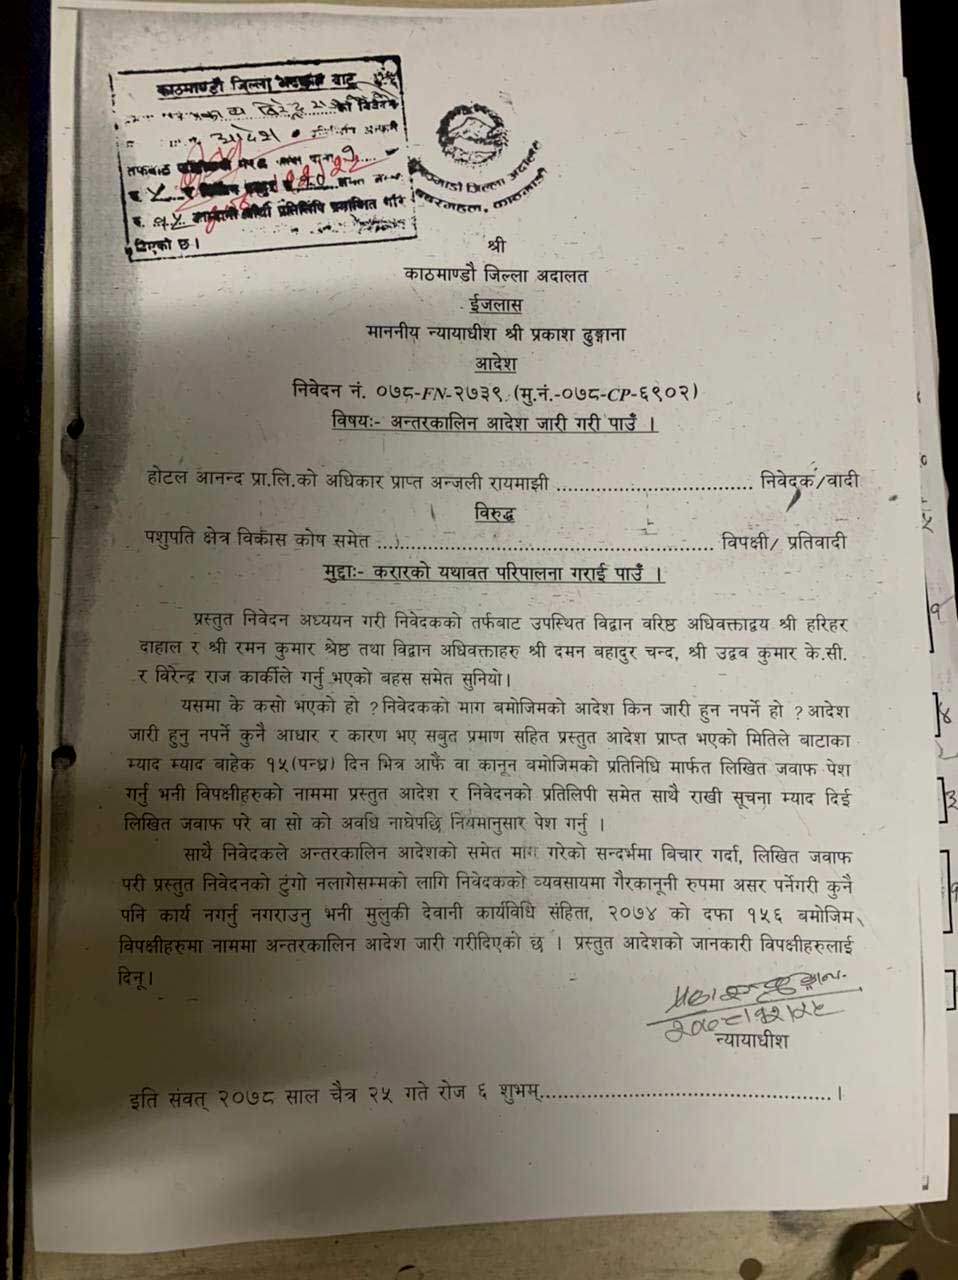 काठमाण्डौ जिल्ला अदालत बाट
आदेश
तर्फबाट
प्रतिलिपि प्रमाणित गरि
दिएको छ।
काठमाडौं जिल्ला अदालत
बबरमहल, काठमाडौं
श्री
काठमाण्डौ जिल्ला अदालत
ईजलास
माननीय न्यायाधीश श्री प्रकाश ढुङ्गाना
आदेश
निवेदन नं. ०७८-FN-२७३९ (मु.नं.-०७८-CP-६९०२)
विषयः- अन्तरकालिन आदेश जारी गरी पाउँ ।
होटल आनन्द प्रा.लि.को अधिकार प्राप्त अन्जली रायमाझी ................................ निवेदक/वादी
विरुद्ध
पशुपति क्षेत्र विकास कोष समेत ...................................................... विपक्षी/ प्रतिवादी
मुद्दाः- करारको यथावत परिपालना गराई पाउँ ।
प्रस्तुत निवेदन अध्ययन गरी निवेदकको तर्फबाट उपस्थित विद्वान वरिष्ठ अधिवक्ताद्वय श्री हरिहर
दाहाल र श्री रमन कुमार श्रेष्ठ तथा विद्वान अधिवक्ताहरु श्री दमन बहादुर चन्द, श्री उद्वव कुमार के.सी.
र विरेन्द्र राज कार्कीले गर्नु भएको बहस समेत सुनियो।
यसमा के कसो भएको हो ? निवेदकको माग बमोजिमको आदेश किन जारी हुन नपर्ने हो ? आदेश
जारी हुनु नपर्ने कुनै आधार र कारण भए सबुत प्रमाण सहित प्रस्तुत आदेश प्राप्त भएको मितिले बाटाका
म्याद म्याद बाहेक १५(पन्ध्र) दिन भित्र आफैं वा कानून बमोजिमको प्रतिनिधि मार्फत लिखित जवाफ पेश
गर्नु भनी विपक्षीहरुको नाममा प्रस्तुत आदेश र निवेदनको प्रतिलिपी समेत साथै राखी सूचना म्याद दिई
लिखित जवाफ परे वा सो को अवधि नाघेपछि नियमानुसार पेश गर्नु ।
साथै निवेदकले अन्तरकालिन आदेशको समेत माग गरेको सन्दर्भमा बिचार गर्दा, लिखित जवाफ
परी प्रस्तुत निवेदनको टुंगो नलागेसम्मको लागि निवेदकको व्यवसायमा गैरकानूनी रुपमा असर पर्नेगरी कुनै
पनि कार्य नगर्नु नगराउनु भनी मुलुकी देवानी कार्यविधि संहिता, २०७४ को दफा १५६ बमोजिम
विपक्षीहरुमा नाममा अन्तरकालिन आदेश जारी गरीदिएको छ । प्रस्तुत आदेशको जानकारी विपक्षीहरुलाई
दिनू।
२०७८।१२।२५
न्यायाधीश
इति संवत् २०७८ साल चैत्र २५ गते रोज ६ शुभम्.................................................।